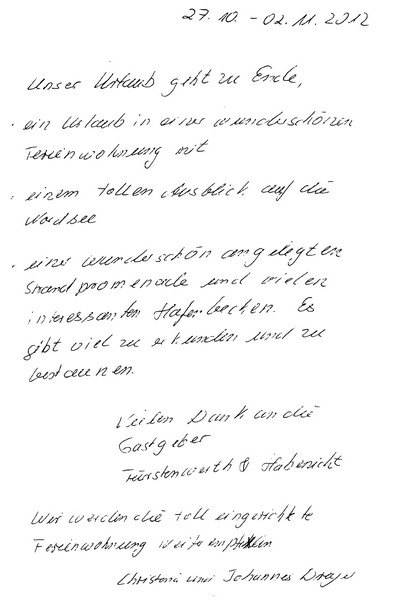 27. 10. - 02. 11. 2012
Unser Urlaub geht zu Ende,
· ein Urlaub in einer wunderschönen
Ferienwohnung mit
· einem tollen Ausblick auf die
Nordsee
· einer wunderschön angelegten
Strandpromenade und vielen
interessanten Hafenbecken. Es
gibt viel zu erkunden und zu
bestaunen.
Vielen Dank an die
Gastgeber
Fürstenwerth & Habericht
Wir werden die toll eingerichtete
Ferienwohnung weiterempfehlen
Christina und Johannes